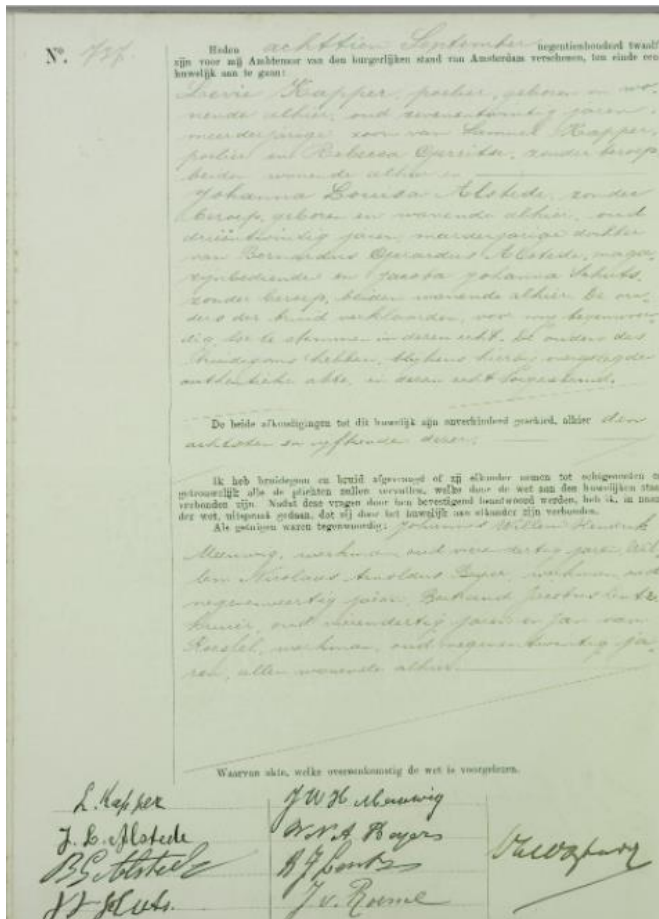 No. 737.
Heden achttien September negentienhonderd twaalf
zijn voor mij Ambtenaar van den burgerlijken stand van Amsterdam verschenen, ten einde een
huwelijk aan te gaan:
Levie Kapper, poelier, geboren en wo-
nende alhier, oud zevenentwintig jaren,
meerderjarige zoon van Samuel Kapper,
poelier en Rebecca Gerritse, zonder beroep,
beiden wonende alhier en
Johanna Louisa Alstede, zonder
beroep, geboren en wonende alhier, oud
drieëntwintig jaren, meerderjarige dochter
van Bernardus Gerardus Alstede, maga-
zijnbediende en Jacoba Johanna Schuts,
zonder beroep, beiden wonende alhier. De ou-
ders der bruid verklaarden, voor ons tegenwoor-
dig, toe te stemmen in dezen echt. De ouders des
bruidegoms hebben, blijkens hierbij overgelegde
authentieke akte, in dezen echt toegestemd.
De beide afkondigingen tot dit huwelijk zijn onverhinderd geschied, alhier den
achtsten en vijftienden dezer.
Ik heb bruidegom en bruid afgevraagd of zij elkander nemen tot echtgenooten en
getrouwelijk alle de plichten zullen vervullen, welke door de wet aan den huwelijken staat
verbonden zijn. Nadat deze vragen door hen bevestigend beantwoord werden, heb ik, in naam
der wet, uitspraak gedaan, dat zij door het huwelijk aan elkander zijn verbonden.
Als getuigen waren tegenwoordig: Johannes Willem Hendrik
Meeuwig, werkman, oud vierendertig jaren, Wil-
lem Nicolaas Arnoldus Beyer, werkman, oud
negenenveertig jaren, Bertrand Jacobus
kruier, oud vierendertig jaren en Jan van
werkman, oud negenentwintig ja-
ren, allen wonende alhier.
Waarvan akte, welke overeenkomstig de wet is voorgelezen.
L. Kapper
J. L. Alstede
B G Alstede
J J Schuts.
J W H Meeuwig
W N A Beyers
B J
J v.